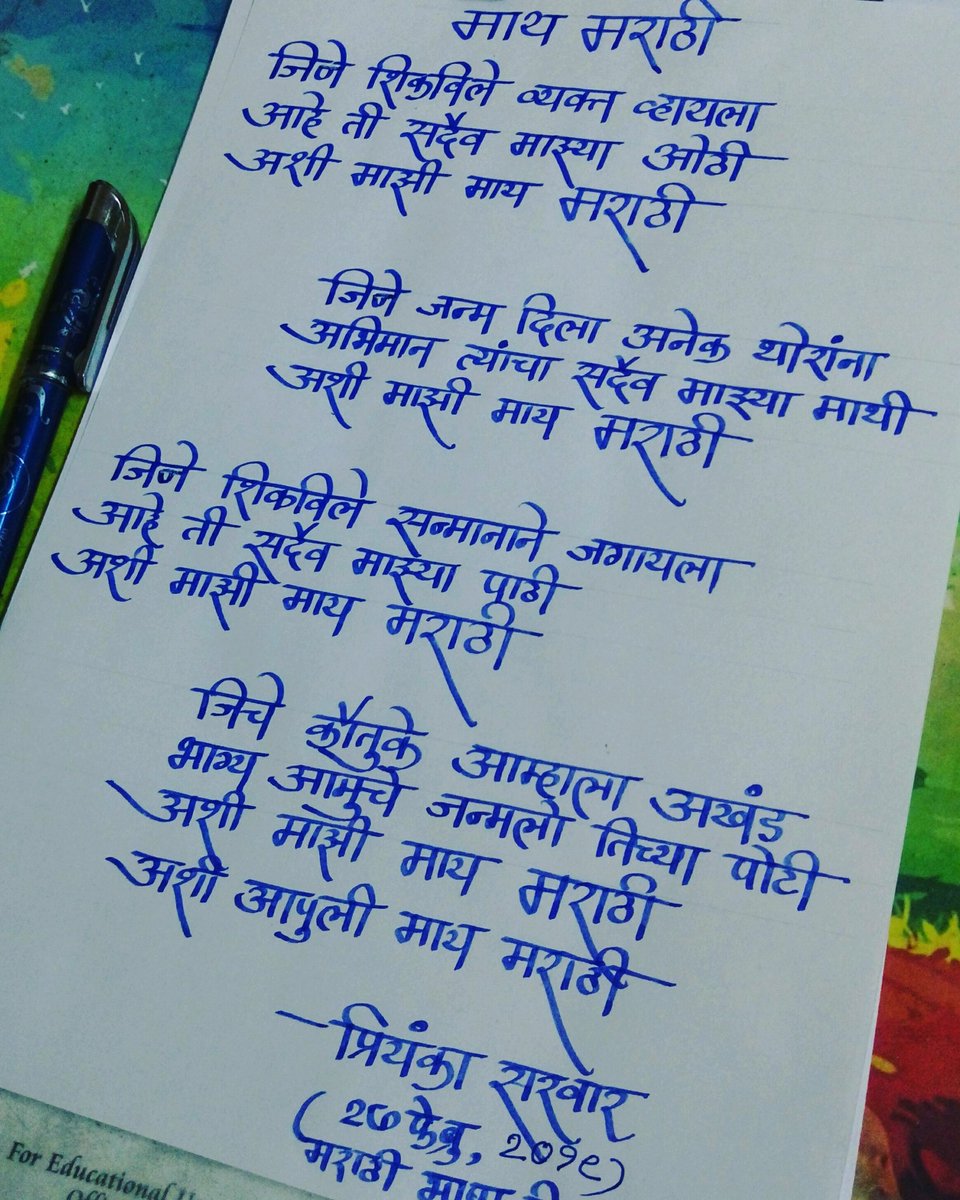 माय मराठी
जिने शिकविले व्यक्त व्हायला
आहे ती सदैव माझ्या ओठी
अशी माझी माय मराठी
जिने जन्म दिला अनेक थोरांना
अभिमान त्यांचा सदैव माझ्या माथी
अशी माझी माय मराठी
जिने शिकविले सन्मानाने जगायला
आहे ती सदैव माझ्या पाठी
अशी माझी माय मराठी
जिचे कौतुके आम्हाला अखंड
भाग्य आमुचे जन्मलो तिच्या पोटी
अशी माझी माय मराठी
अशी आपुली माय मराठी
- प्रियंका सरवार
(२७ फेब्रु, २०१९)
मराठी भाषा
For Educational